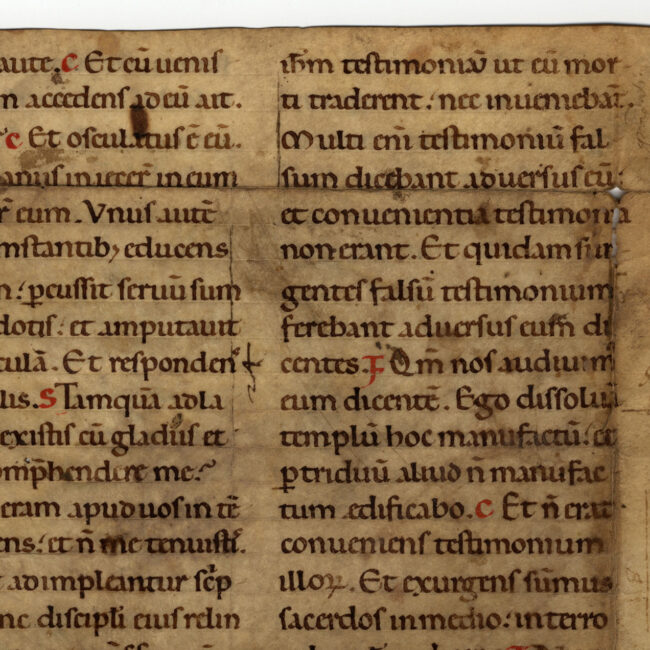 aute. c Et cū uenis
m accedens ad eū ait.
c Et osculatus ē eū.
manus iniecer̄ in eum
r̄ eum. Vnus autē
mstantib; educens
n: ꝑcussit seruū sum
dotis: et amputauit
culā. Et responden̄
lis. S Tamquā ad la
existis cū gladiis et
omp̄hendere me.
eram apud uos in tē
ens: et n̄ me tenuistī.
adimpleantur sc̄p
nc discipli eius relin
ih̄m testimoniū ut eū mor
ti traderent: nec inueniebāt.
Multi eni̅ testimoniū fal
sum dicebant aduersus eū:
et conuenientia testimonia
non erant. Et quidam sur
gentes falsū testimonium
ferebant aduersus eum di
centes. F Qm̄ nos audiuim̄
eum dicentē. Ego dissoluā
templū hoc manufactū: et
ꝑ triduū aliud n̄ manufac
tum edificabo. C Et n̄ erat
conueniens testimonium
illoꝝ. Et exurgens sūmus
sacerdos in medio: interro